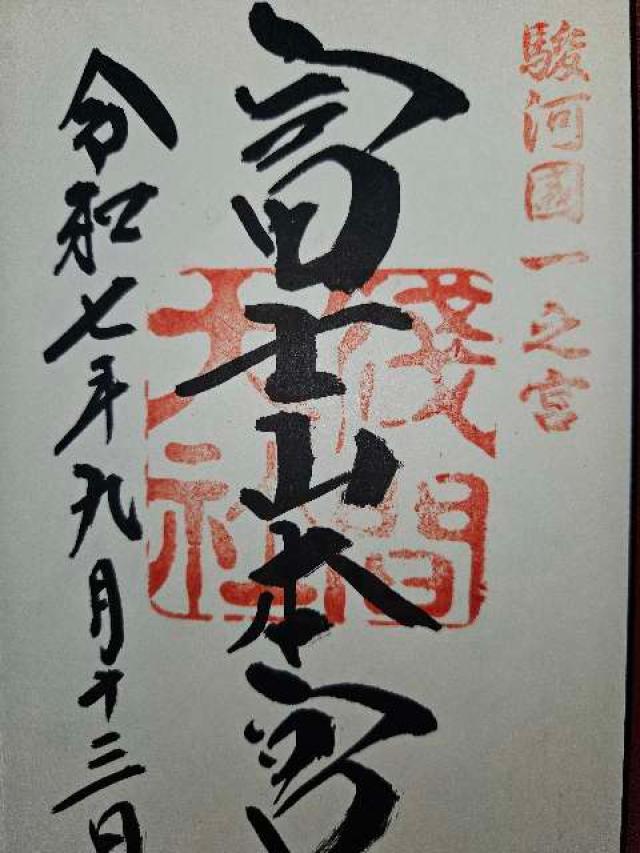 駿河國一之宮
富士山本宮
淺間大社
令和七年九月十三日